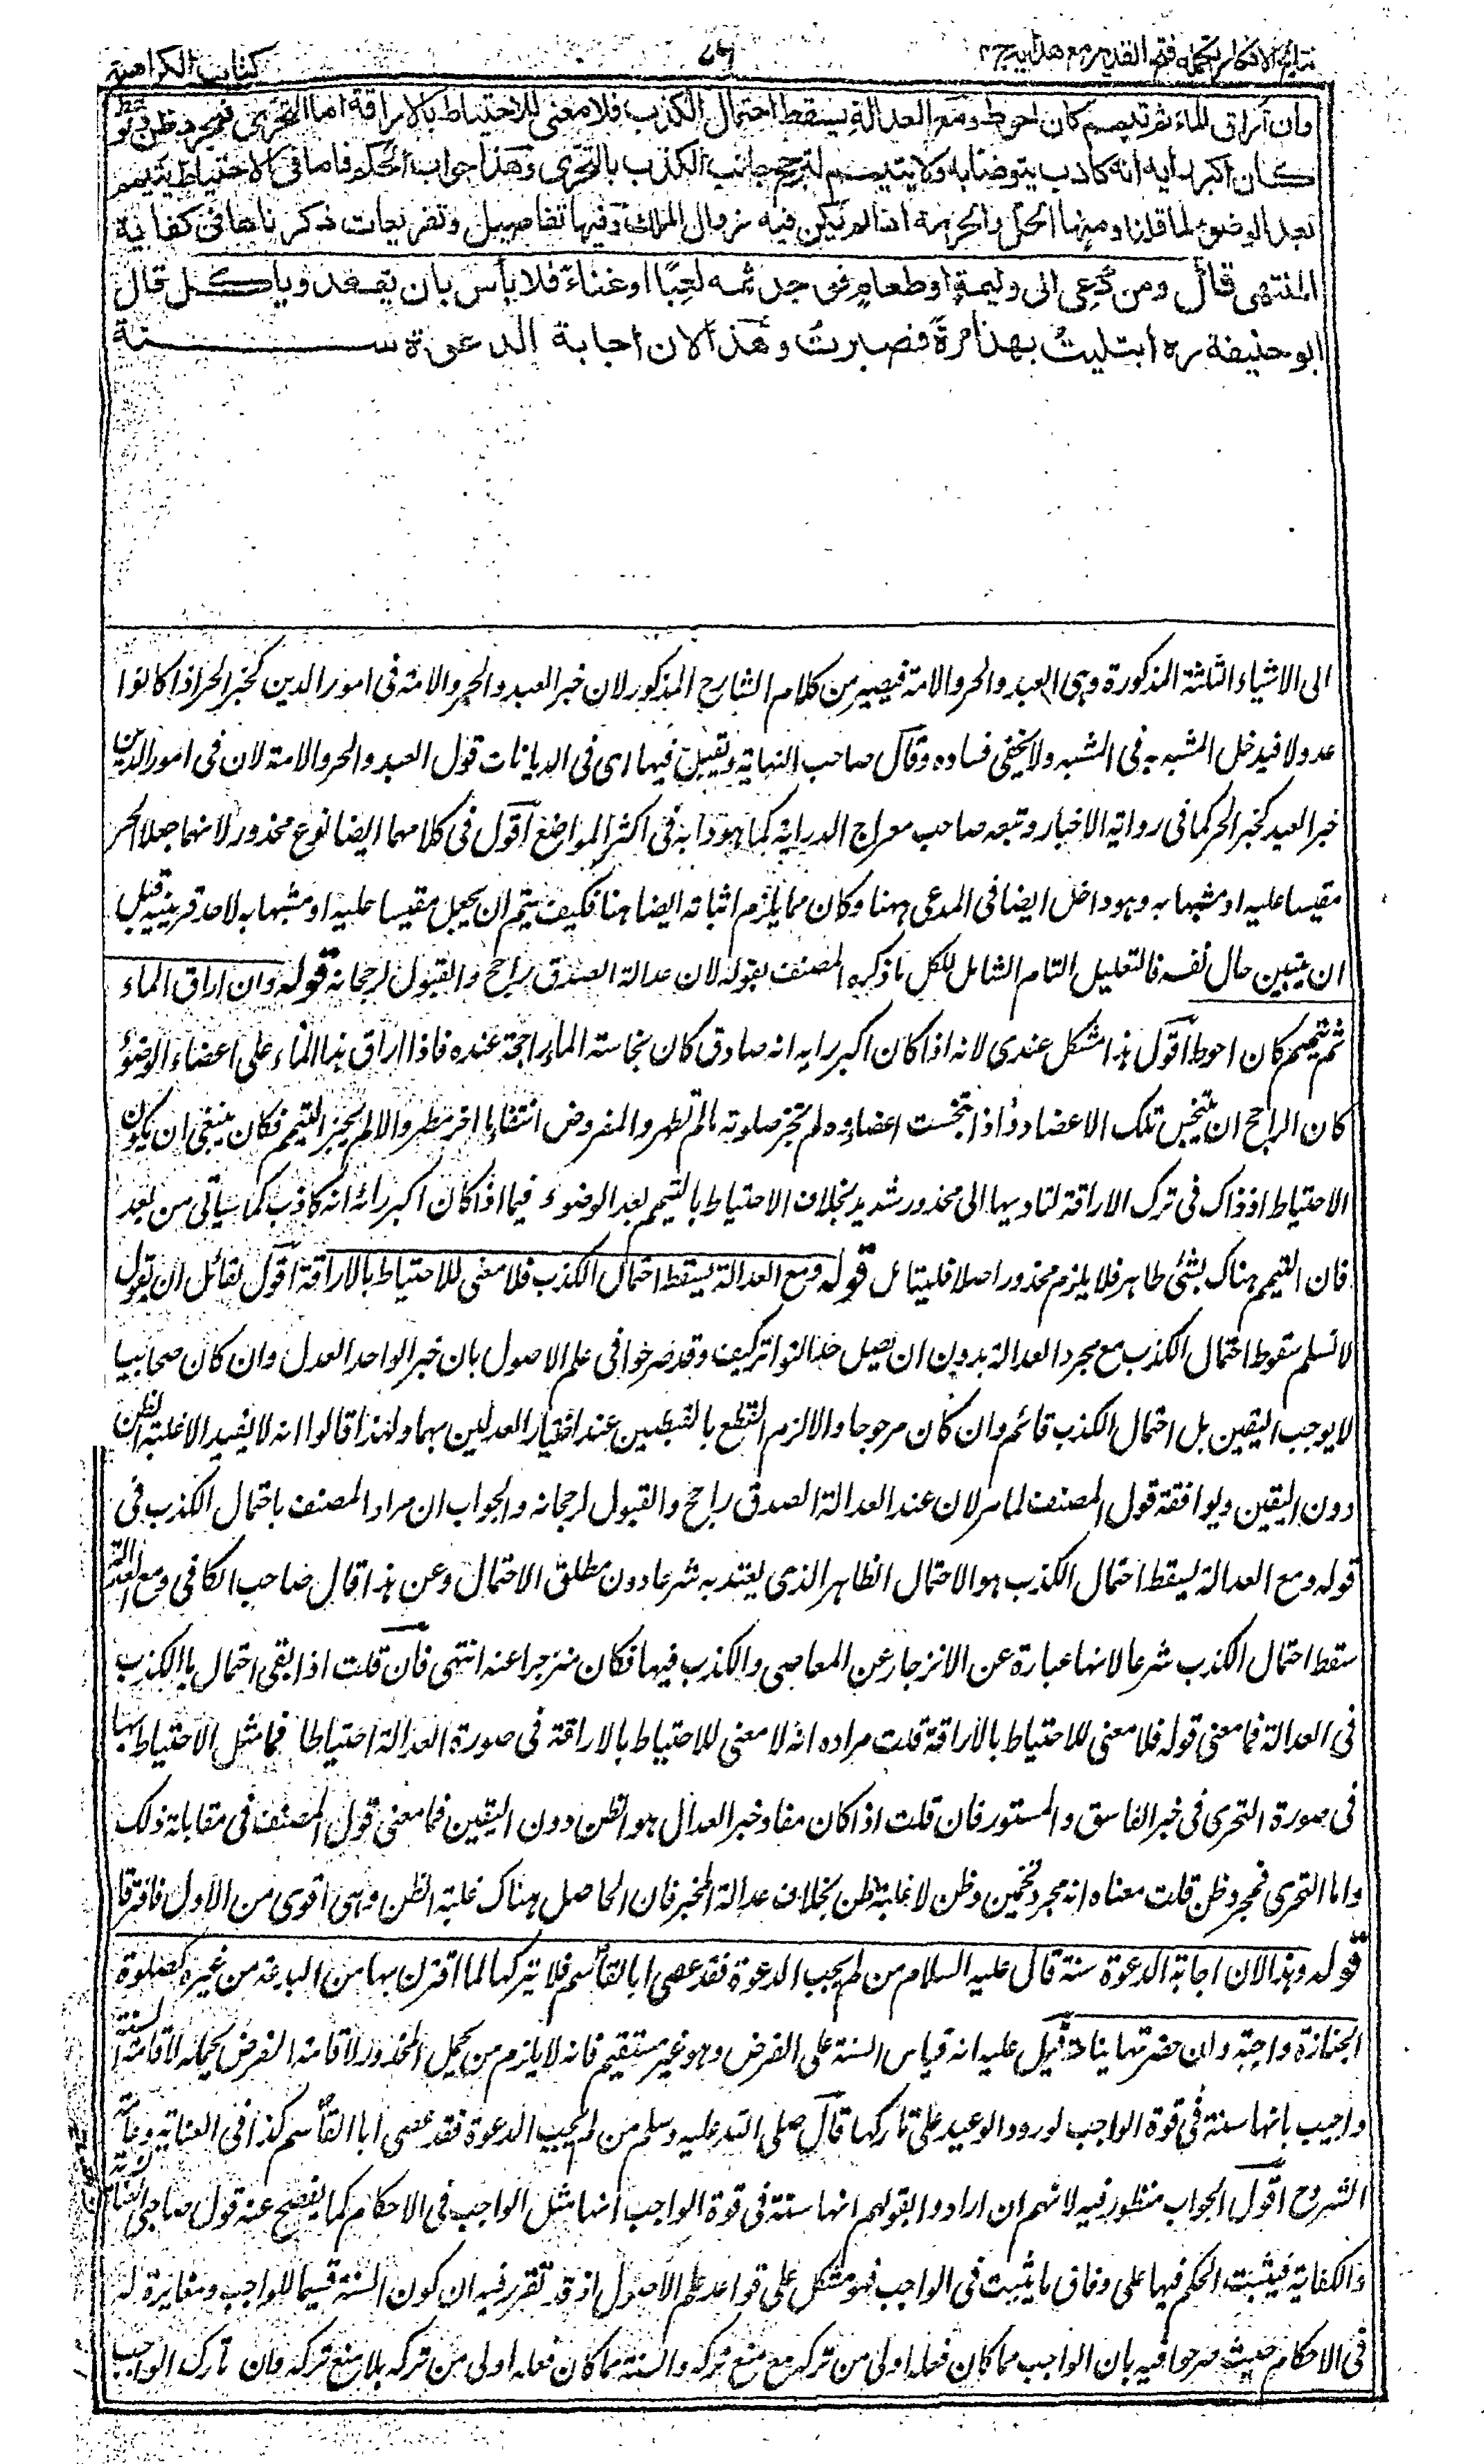 نتائج الافكار تكملة فتح القدير مع هدايه ج ٤
كتاب الكراهية
وان اراق الماء ثم تيمم كان احوط ومع العدالة يسقط احتمال الكذب فلا معنى للاحتياط بالاراقة اما التحرى فمجرد ظن ولو
كان اكبر رايه انه كاذب يتوضأ به ولا يتيمم لترجح جانب الكذب بالتحرى وهذا جواب الحكم فاما فى الاحتياط يتيمم
بعد الوضوء لما قلنا ومنها الحل والحرمة اذا لم يكن فيه زوال الملك وفيها تفاصيل وتفريعات ذكرناها فى كفاية
المنتهى قال ومن دُعِى الى وليمةٍ او طعامٍ فوجد ثمه لعِبًا او غناءً فلا بأس بان يقعد ويأكل قال
ابو حنيفة ره ابتليتُ بهذا مرةً فصبرتُ وهذا لان اجابة الدعوة سنة
الى الاشياء الثلثة المذكورة وهى العبد والحر والامة فيصير من كلام الشارح المذكور لان خبر العبد والحر والامة فى امور الدين كخبر الحر اذا كانوا
عدولا فيدخل المشبه به فى المشبه ولا يخفى فساده وقال صاحب النهاية ويقبل فيها اى فى الديانات قول العبد والحر والامة لان فى امور الدين
خبر العبد كخبر الحر كما فى رواية الاخبار وتبعه صاحب معراج الدراية كما هو دابه فى اكثر المواضع اقول فى كلامهما ايضا نوع محذور لانهما جعلا الحر
مقيسا عليه او مشبها به وهو داخل ايضا فى المدعى ههنا وكان مما يلزم اثباته ايضا هنا فكيف يتم ان يجعل مقيسا عليه او مشبها به لاحد قرينيه قبل
ان يتبين حال نفسه فالتعليل التام الشامل للكل ما ذكره المصنف بقوله لان عدالة الصدق راجح والقبول لرجحانه قوله وان اراق الماء
ثم تيمم كان احوط اقول هذا مشكل عندى لانه اذا كان اكبر رايه انه صادق كان نجاسة الماء راجحة عنده فاذا اراق هذا الماء على اعضاء الوضوء
كان الراجح ان يتنجس تلك الاعضاء واذا تنجست اعضاؤه لم تجز صلوته ما لم تطهر والمفروض انتفاء ماء اخر مطهر والا لم يجز التيمم فكان ينبغى ان يكون
الاحتياط اذ ذاك فى ترك الاراقة لتاديها الى محذور شديد بخلاف الاحتياط بالتيمم بعد الوضوء فيما اذا كان اكبر رائه انه كاذب كما سياتى من بعد
فان التيمم هناك بشئ طاهر فلا يلزم محذور اصلا فليتامل قوله ومع العدالة يسقط احتمال الكذب فلا معنى للاحتياط بالاراقة اقول لقائل ان يقول
لا نسلم سقوط احتمال الكذب مع مجرد العدالة بدون ان يصل حد التواتر كيف وقد صرحوا فى علم الاصول بان خبر الواحد العدل وان كان صحابيا
لا يوجب اليقين بل احتمال الكذب قائم وان كان مرجوحا والا لزم القطع بالنقيضين عند اخبار العدلين بهما ولهذا قالوا انه لا يفيد الا غلبة الظن
دون اليقين ويوافقه قول المصنف لما مر لان عند العدالة الصدق راجح والقبول لرجحانه والجواب ان مراد المصنف باحتمال الكذب فى
قوله ومع العدالة يسقط احتمال الكذب هو الاحتمال الظاهر الذى يعتد به شرعا دون مطلق الاحتمال وعن هذا قال صاحب الكافى ومع العدالة
سقط احتمال الكذب شرعا لانها عبارة عن الانزجار عن المعاصى والكذب فيها فكان منزجرا عنه انتهى فان قلت اذا بقى احتمال ما للكذب
فى العدالة فما معنى قوله فلا معنى للاحتياط بالاراقة قلت مراده انه لا معنى للاحتياط بالاراقة فى صورة العدالة احتياطا فما مثل الاحتياط بها
فى صورة التحرى فى خبر الفاسق والمستور فان قلت اذا كان مفاد خبر العدل هو الظن دون اليقين فما معنى قول المصنف فى مقابلة ذلك
واما التحرى فمجرد ظن قلت معناه انه مجرد تخمين وظن لا غلبة ظن بخلاف عدالة المخبر فان الحاصل هناك غلبة الظن وهى اقوى من الاول فافترقا
قوله وهذا لان اجابة الدعوة سنة قال عليه السلام من لم يجب الدعوة فقد عصى ابا القاسم فلا يتركها لما اقترن بها من البدعة من غيره كصلوة
الجنازة واجبة وان حضرتها نياحة قيل عليه انه قياس السنة على الفرض وهو غير مستقيم فانه لا يلزم من تحمل المحذور لاقامة الفرض تحمله لاقامة السنة
واجيب بانها سنة فى قوة الواجب لورود الوعيد على تاركها قال صلى الله عليه وسلم من لم يجب الدعوة فقد عصى ابا القاسم كذا فى العناية وعامة
الشروح اقول الجواب منظور فيه لانهم ان ارادوا بقولهم انها سنة فى قوة الواجب انها مثل الواجب فى الاحكام كما يفصح عنه قول صاحبى النهاية
والكفاية فيثبت الحكم فيها على وفاق ما يثبت فى الواجب فهو مشكل على قواعد علم الاصول اذ قد تقرر فيه ان كون السنة قسيما للواجب ومغايرة له
فى الاحكام حيث صرحوا فيه بان الواجب مما كان فعله اولى من تركه مع منع تركه والسنة مما كان فعله اولى من تركه بلا منع تركه وان تارك الواجب